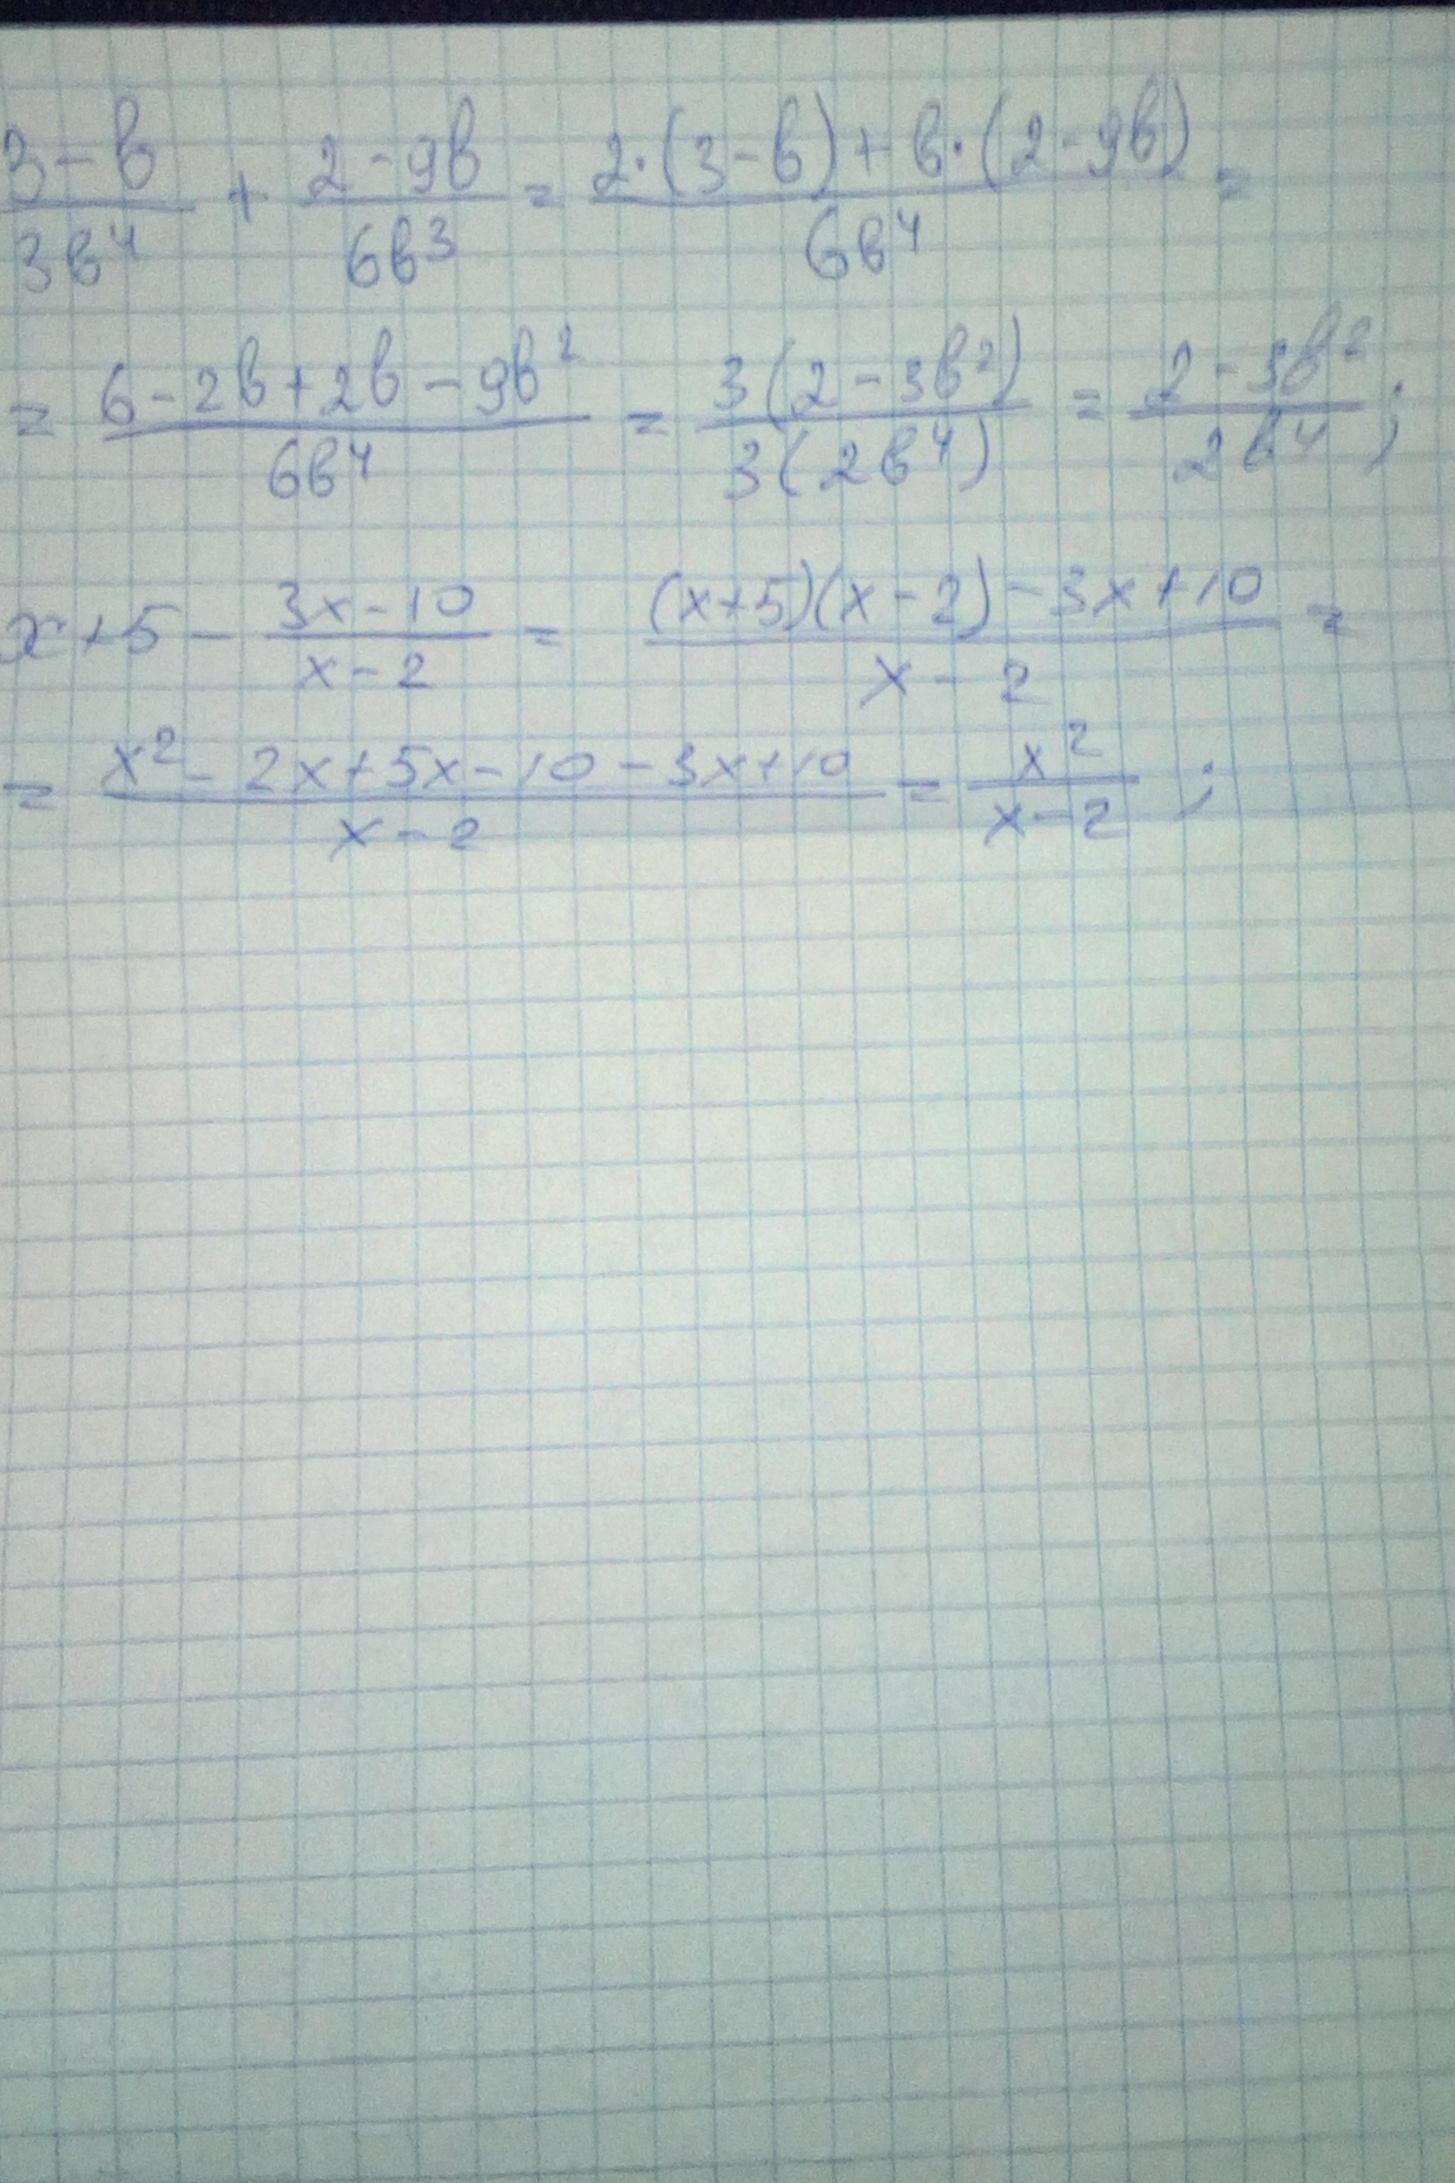 (3-b)/(3b⁴) + (2-9b)/(6b³) = (2·(3-b)+b·(2-9b))/(6b⁴) =
= (6-2b+2b-9b²)/(6b⁴) = (3(2-3b²))/(3(2b⁴)) = (2-3b²)/(2b⁴);
x+5 - (3x-10)/(x-2) = ((x+5)(x-2)-3x+10)/(x-2) =
= (x²-2x+5x-10-3x+10)/(x-2) = x²/(x-2);